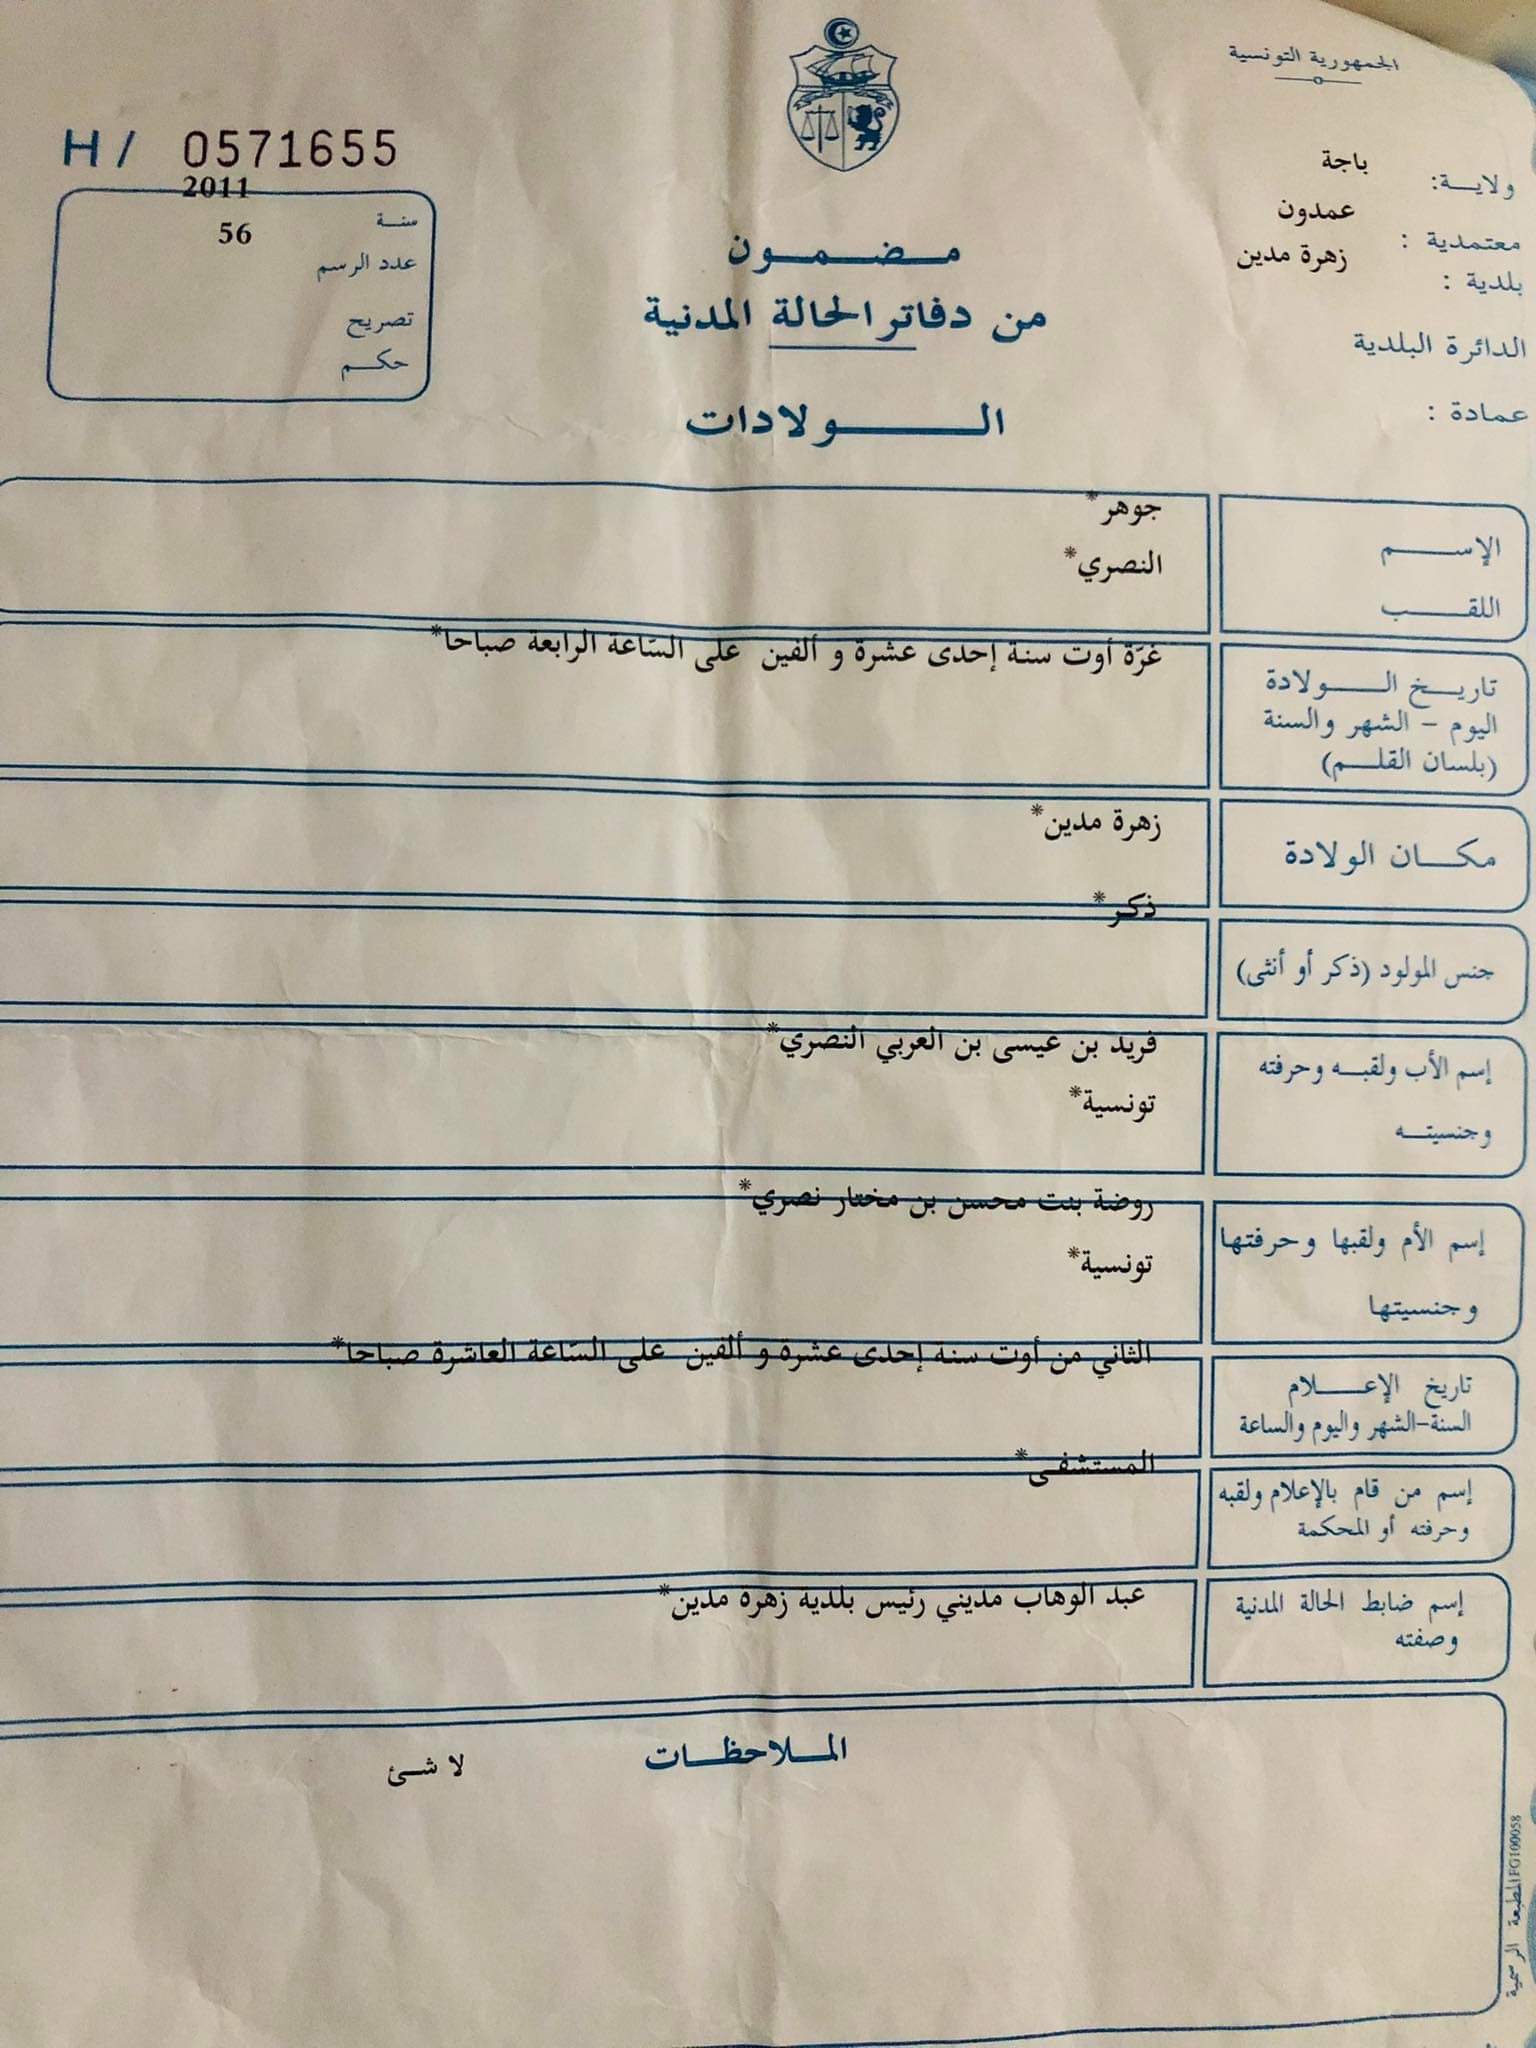 الجمهورية التونسية
ولاية: باجة
معتمدية : عمدون
بلدية : زهرة مدين
الدائرة البلدية
عمادة :
H / 0571655
سنة 2011
عدد الرسم 56
تصريح
حكم
مضمون
من دفاتر الحالة المدنية
الولادات
الإسم جوهر*
اللقب النصري*
تاريخ الولادة
اليوم - الشهر والسنة
(بلسان القلم)
غرّة أوت سنة إحدى عشرة و ألفين على السّاعة الرابعة صباحا*
مكان الولادة زهرة مدين*
جنس المولود (ذكر أو أنثى) ذكر*
إسم الأب ولقبه وحرفته فريد بن عيسى بن العربي النصري*
وجنسيته تونسية*
إسم الأم ولقبها وحرفتها روضة بنت محسن بن مختار نصري*
وجنسيتها تونسية*
تاريخ الإعلام
السنة-الشهر واليوم والساعة
الثاني من أوت سنة إحدى عشرة و ألفين على السّاعة العاشرة صباحا*
إسم من قام بالإعلام ولقبه
وحرفته أو المحكمة
المستشفى*
إسم ضابط الحالة المدنية
وصفته
عبد الوهاب مديني رئيس بلدية زهرة مدين*
الملاحظات
لا شئ
المطبعة الرسمية FG100058